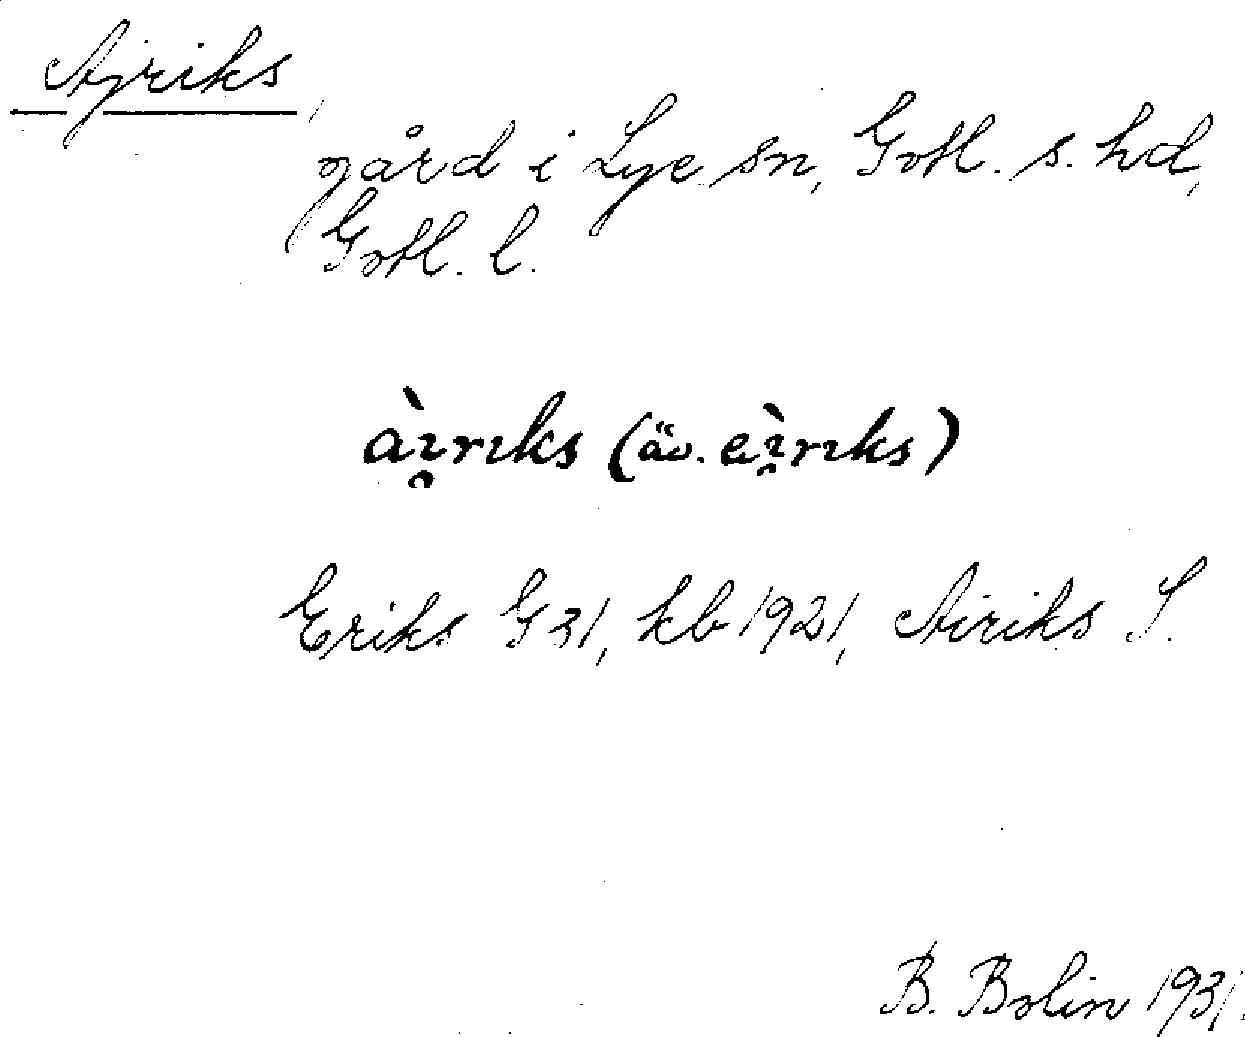 Ajriks,
gård i Lye sn, Gotl. s. hd,
Gotl. l.
àı̯rıks (äv. eı̯̀rıks)
Eriks G 31, kb 1921, Airiks S.
B. Bolin 1931.